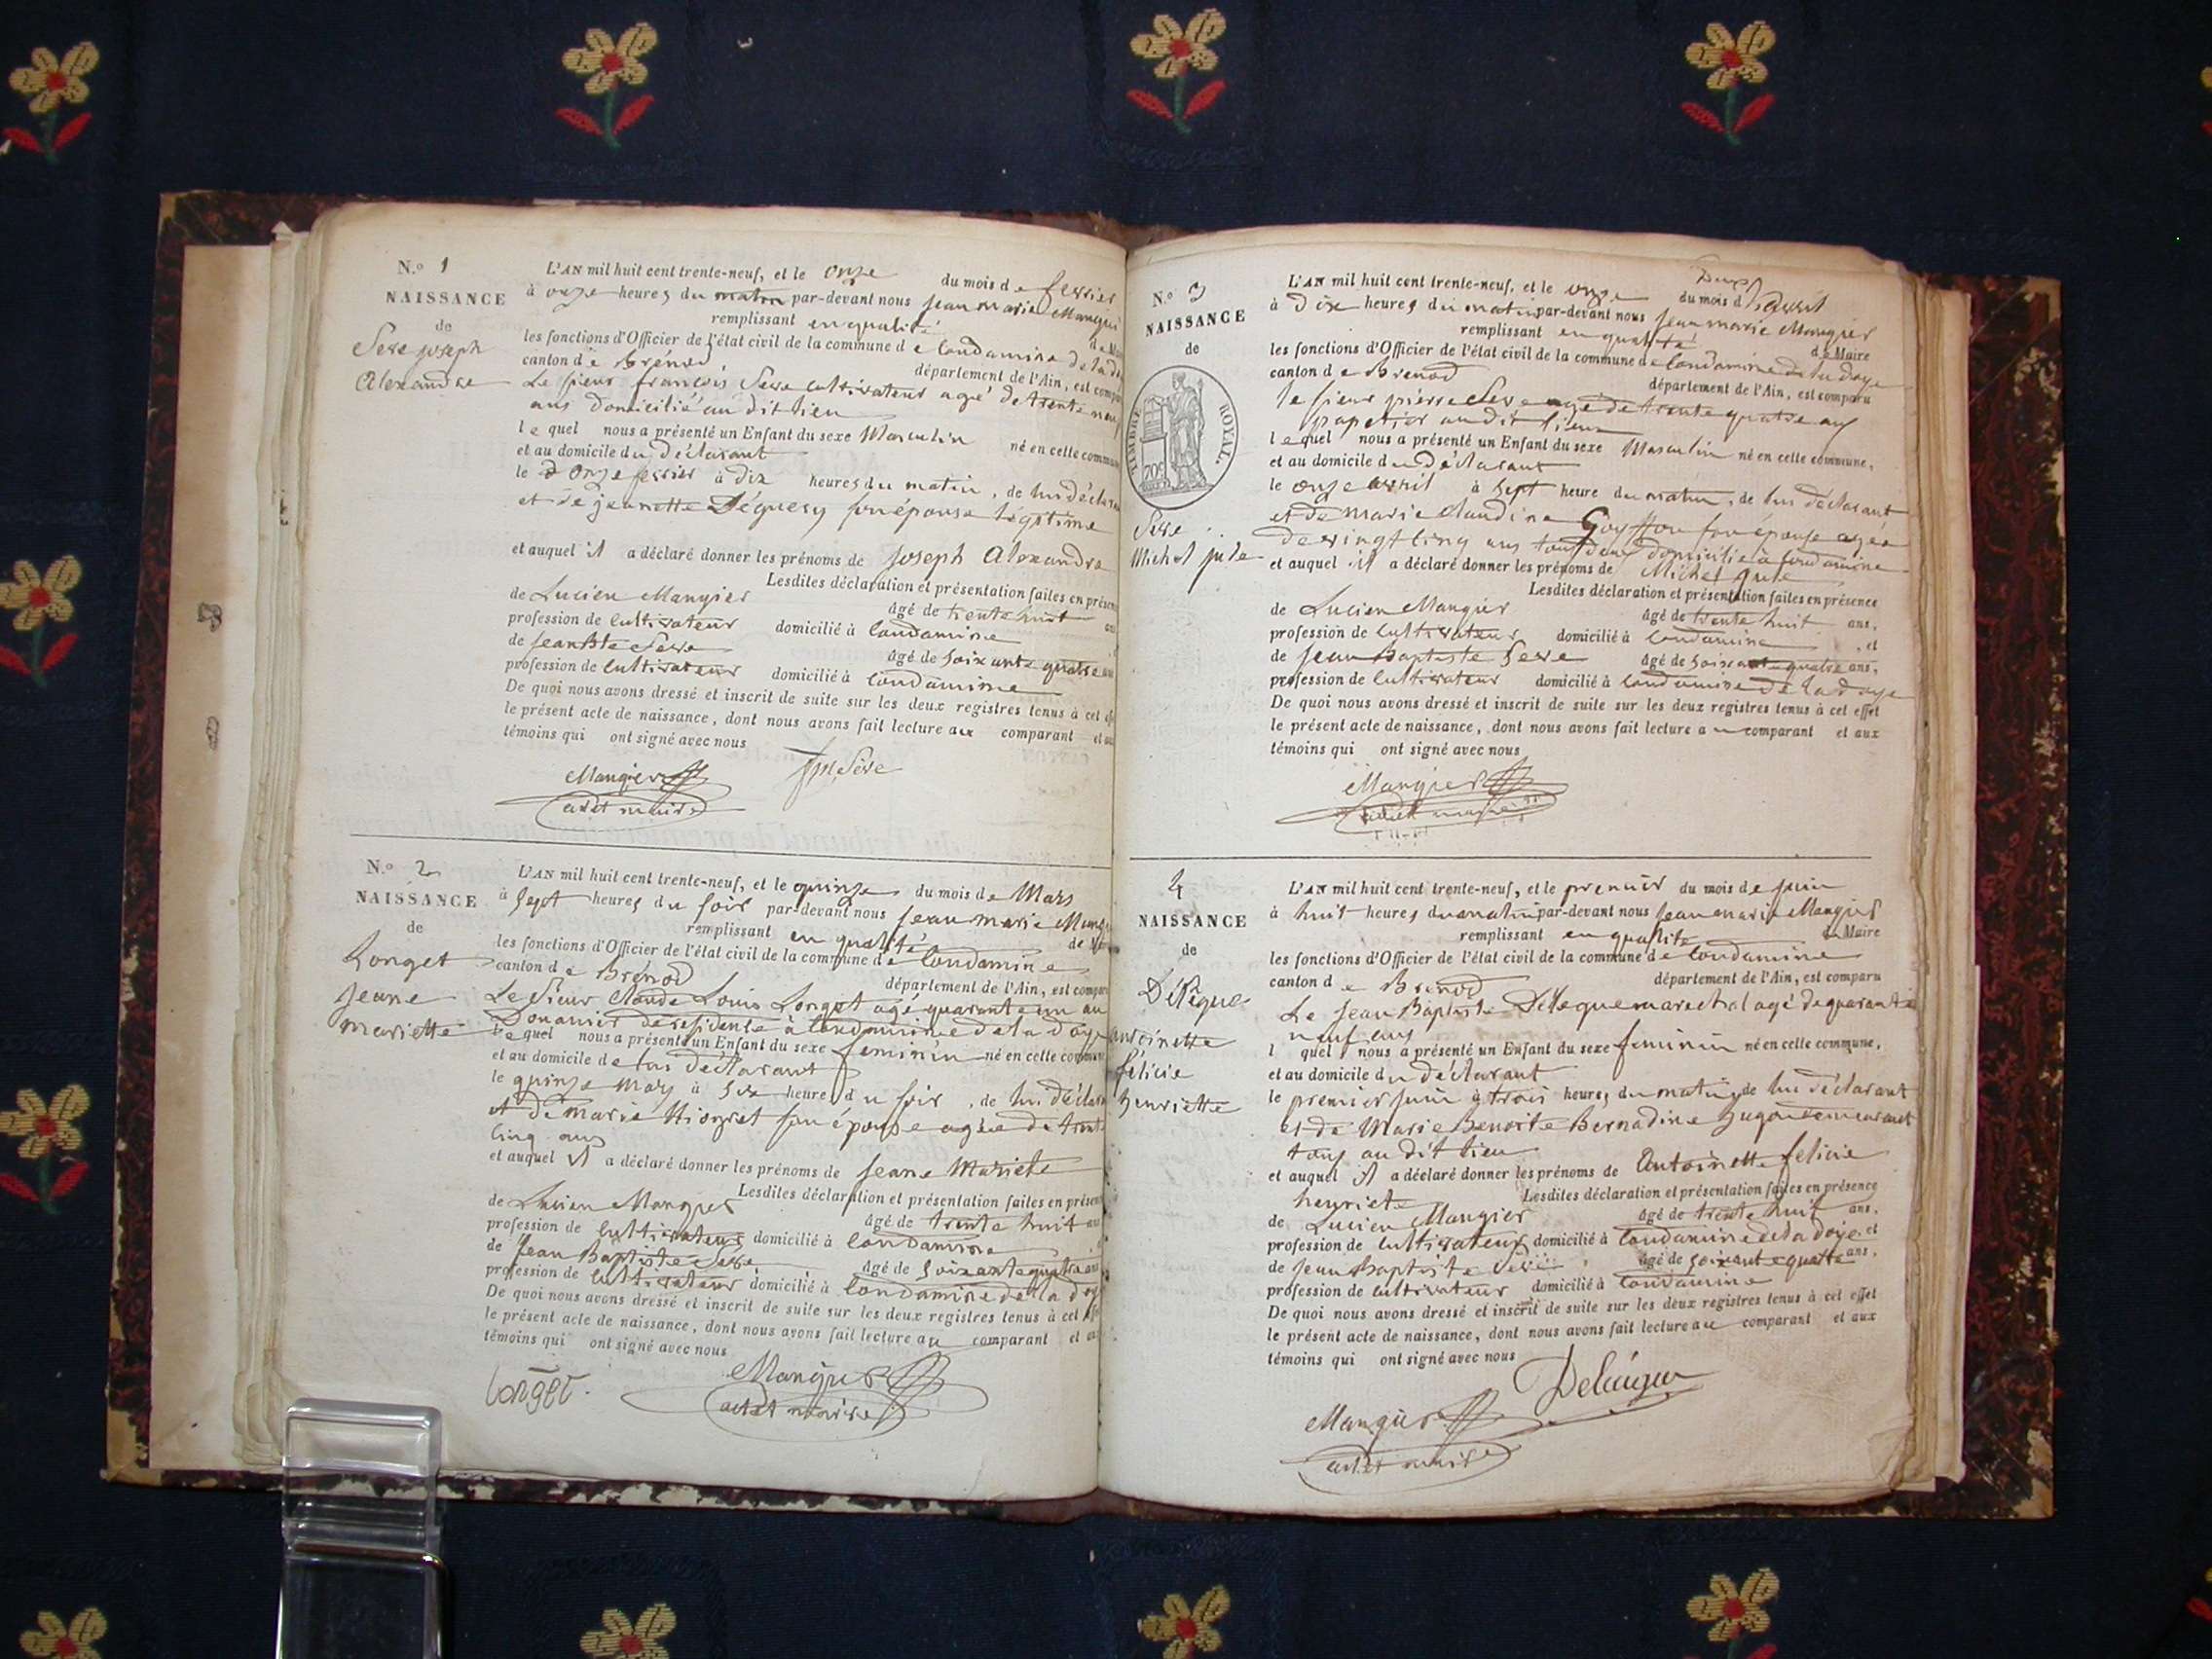 N.º 1
NAISSANCE
de
Serre joseph
Alexandre
L'AN mil huit cent trente-neuf, et le onze du mois de fevrier
à onze heures du matin par-devant nous jean marie Mangier
remplissant en qualité de Maire
les fonctions d'Officier de l'état civil de la commune de Condamine de la doye
canton de Brénod département de l'Ain, est comparu
Le sieur françois Serre cultivateur agé de trente neuf
ans domicilié au dit lieu
lequel nous a présenté un Enfant du sexe Masculin né en cette commune
et au domicile du déclarant
le onze fevrier à dix heures du matin, de lui déclarant
et de jeanette son épouse légitime
et auquel il a déclaré donner les prénoms de joseph Alexandre
Lesdites déclaration et présentation faites en présence
de Lucien Mangier âgé de trente huit ans
profession de cultivateur domicilié à Condamine
de jean Bte Serre âgé de soixante quatre ans
profession de cultivateur domicilié à Condamine
De quoi nous avons dressé et inscrit de suite sur les deux registres tenus à cet effet
le présent acte de naissance, dont nous avons fait lecture aux comparant et aux
témoins qui ont signé avec nous
Mangier
adet maire
N.º 2
NAISSANCE
de
Longet
jeane
mariette
L'AN mil huit cent trente-neuf, et le quinze du mois de Mars
à sept heures du soir par-devant nous jean marie Mangier
remplissant en qualité de Maire
les fonctions d'Officier de l'état civil de la commune de Condamine
canton de Brénod département de l'Ain, est comparu
Le Sieur Claude Louis Longet agé quarante un an
Douanier de residence à Condamine de la doye
lequel nous a présenté un Enfant du sexe feminin né en cette commune
et au domicile de lui déclarant
le quinze mars à six heure du soir, de lui déclarant
et de marie son épouse agée de trente
cinq ans
et auquel il a déclaré donner les prénoms de jeane Mariete
Lesdites déclaration et présentation faites en présence
de Lucien Mangier âgé de trente huit ans
profession de cultivateur domicilié à Condamine
de jean Baptiste Serre âgé de soixante quatre ans
profession de cultivateur domicilié à Condamine de la doye
De quoi nous avons dressé et inscrit de suite sur les deux registres tenus à cet effet
le présent acte de naissance, dont nous avons fait lecture au comparant et aux
témoins qui ont signé avec nous
Longet
Mangier
adet maire
N.º 3
NAISSANCE
de
TIMBRE ROYAL.
Serre
Michel jule
L'AN mil huit cent trente-neuf, et le onze du mois d'avril
à dix heures du matin par-devant nous jean marie Mangier
remplissant en qualité de Maire
les fonctions d'Officier de l'état civil de la commune de Condamine de la doye
canton de Brenod département de l'Ain, est comparu
le sieur pierre Serre agé de trente quatre ans
papetier au dit lieu
lequel nous a présenté un Enfant du sexe Masculin né en cette commune,
et au domicile du déclarant
le onze avril à sept heure du matin, de lui déclarant
et de marie claudine son épouse agée
de vingt cinq ans tous deux domicilié à Condamine
et auquel il a déclaré donner les prénoms de Michel jule
Lesdites déclaration et présentation faites en présence
de Lucien Mangier âgé de trente huit ans,
profession de cultivateur domicilié à Condamine, et
de jean Baptiste Serre âgé de soixante quatre ans,
profession de cultivateur domicilié à Condamine de la doye
De quoi nous avons dressé et inscrit de suite sur les deux registres tenus à cet effet
le présent acte de naissance, dont nous avons fait lecture au comparant et aux
témoins qui ont signé avec nous
Mangier
4
NAISSANCE
de
Délègue
antoinette
félicie
henriette
L'AN mil huit cent trente-neuf, et le premier du mois de juin
à huit heures du matin par-devant nous jean marie Mangier
remplissant en qualite de Maire
les fonctions d'Officier de l'état civil de la commune de Condamine
canton de Brenod département de l'Ain, est comparu
Le jean Baptiste marechal agé de quarante
neuf ans
l quel nous a présenté un Enfant du sexe feminin né en cette commune,
et au domicile du déclarant
le premier juin à trois heures du matin, de lui déclarant
et de Marie Benoite Bernadine demeurant
tous au dit lieu
et auquel il a déclaré donner les prénoms de Antoinette felicie
henriete Lesdites déclaration et présentation faites en présence
de Lucien Mangier âgé de trente huit ans,
profession de cultivateur domicilié à Condamine de la doye, et
de jean Baptiste Serre âgé de soixante quatre ans,
profession de cultivateur domicilié à Condamine
De quoi nous avons dressé et inscrit de suite sur les deux registres tenus à cet effet
le présent acte de naissance, dont nous avons fait lecture au comparant et aux
témoins qui ont signé avec nous
Mangier
adet maire